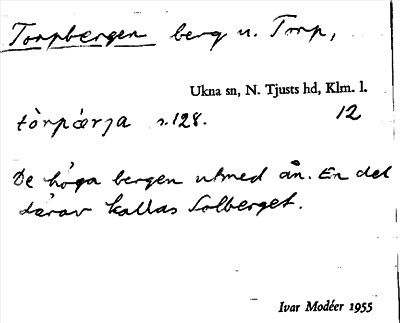 Torpbergen berg u. Torp,
Ukna sn, N. Tjusts hd, Klm. l.
tòrpær̀ja s.128. 12
De höga bergen utmed ån. En del
därav kallas Solberget.
Ivar Modéer 1955